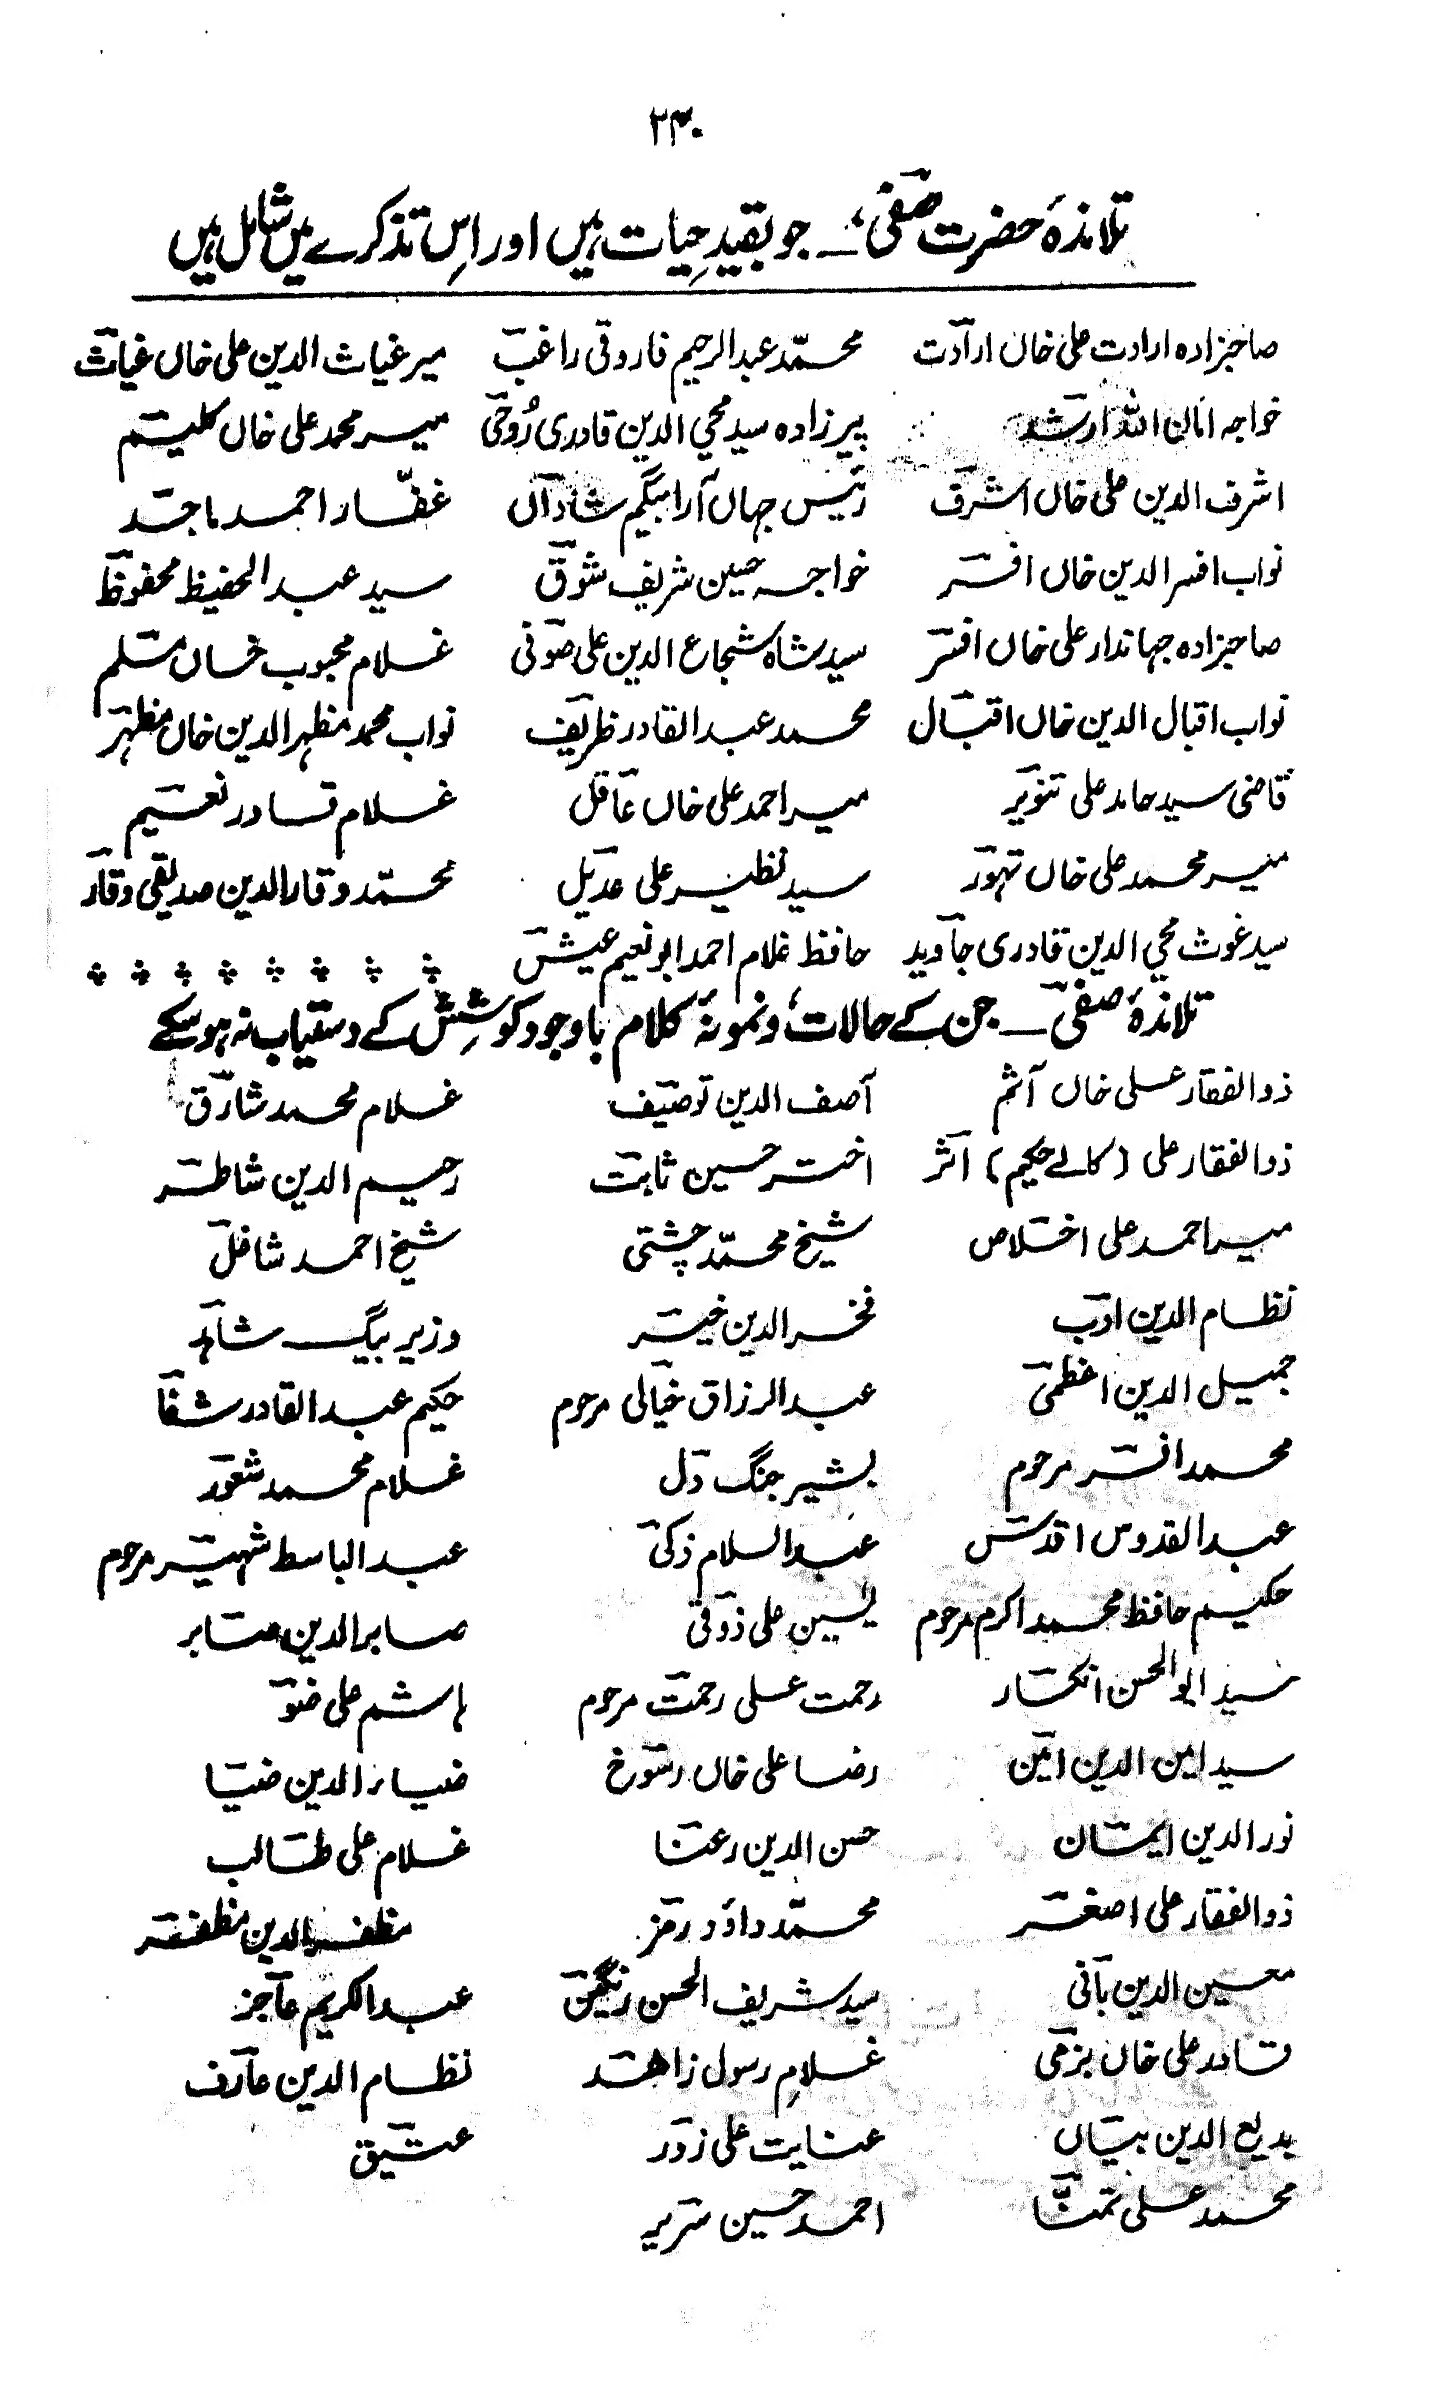 ۲۳۰
تلامذۂ حضرت صفیؔ ۔ جو بقیدِ حیات ہیں اور اس تذکرے میں شامل ہیں
صاحبزادہ ارادت علی خاں ارادتؔ
خواجہ امان اللہ ارشدؔ
اشرف الدین علی خاں اشرفؔ
نواب افسر الدین خاں افسرؔ
صاحبزادہ جہاندار علی خاں افسرؔ
نواب اقبال الدین خاں اقبالؔ
قاضی سید حامد علی تنویرؔ
میر محمد علی خاں تہورؔ
سید غوث محی الدین قادری جاویدؔ
محمّد عبدالرحیم فاروقی راغبؔ
پیرزادہ سید محی الدین قادری رُوحیؔ
رئیس جہاں آرا بیگم شاداںؔ
خواجہ حسین شریف شوقؔ
سید شاہ شجاع الدین علی صوفیؔ
محمد عبدالقادر ظریفؔ
میر احمد علی خاں عاقلؔ
سید نظیر علی عدیلؔ
حافظ غلام احمد ابو نعیم عیشؔ
میر غیاث الدین علی خاں غیاثؔ
میر محمد علی خاں کلیمؔ
غفّار احمد ماجدؔ
سید عبدالحفیظ محفوظؔ
غلام محبوب خاں مسلمؔ
نواب محمد مظہر الدین خاں مظہرؔ
غلام قادر نعیمؔ
محمّد وقار الدین صدیقی وقارؔ
تلامذۂ صفیؔ ۔ جن کے حالات و نمونۂ کلام باوجود کوشِش کے دستیاب نہ ہو سکے
ذوالفقار علی خاں آثمؔ
ذوالفقار علی (کالے حکیم) اثرؔ
میر احمد علی اخلاصؔ
نظام الدین ادبؔ
جمیل الدین اعظمیؔ
محمد افسرؔ مرحوم
عبدالقدوس اقدسؔ
حکیم حافظ محمد اکرمؔ مرحوم
سید ابوالحسن انکسارؔ
سید امین الدین امینؔ
نور الدین ایمانؔ
ذوالفقار علی اصغرؔ
معین الدین بانیؔ
قادر علی خاں بزمیؔ
بدیع الدین بیاںؔ
محمد علی تمنّاؔ
آصف الدین توصیفؔ
اختر حسین ثابتؔ
شیخ محمّد چشتیؔ
فخر الدین خیرؔ
عبدالرزاق خیالیؔ مرحوم
بشیر جنگ دلؔ
عبدالسلام ذکیؔ
یٰسین علی ذوقیؔ
رحمت علی رحمتؔ مرحوم
رضا علی خاں رسوخؔ
حسن الدین رعناؔ
محمّد داؤد رمزؔ
سید شریف الحسن رنگینؔ
غلام رسول زاہدؔ
عنایت علی زورؔ
احمد حسین سریرؔ
غلام محمد شارقؔ
رحیم الدین شاطرؔ
شیخ احمد شاغلؔ
وزیر بیگ شاہدؔ
حکیم عبدالقادر شفاؔ
غلام محمد شعورؔ
عبدالباسط شہیرؔ مرحوم
صابر الدین صابرؔ
ہاشم علی ضوؔ
ضیاء الدین ضیاؔ
غلام علی طالبؔ
مظفر الدین مظفرؔ
عبدالکریم عاجزؔ
نظام الدین عارفؔ
عتیقؔ